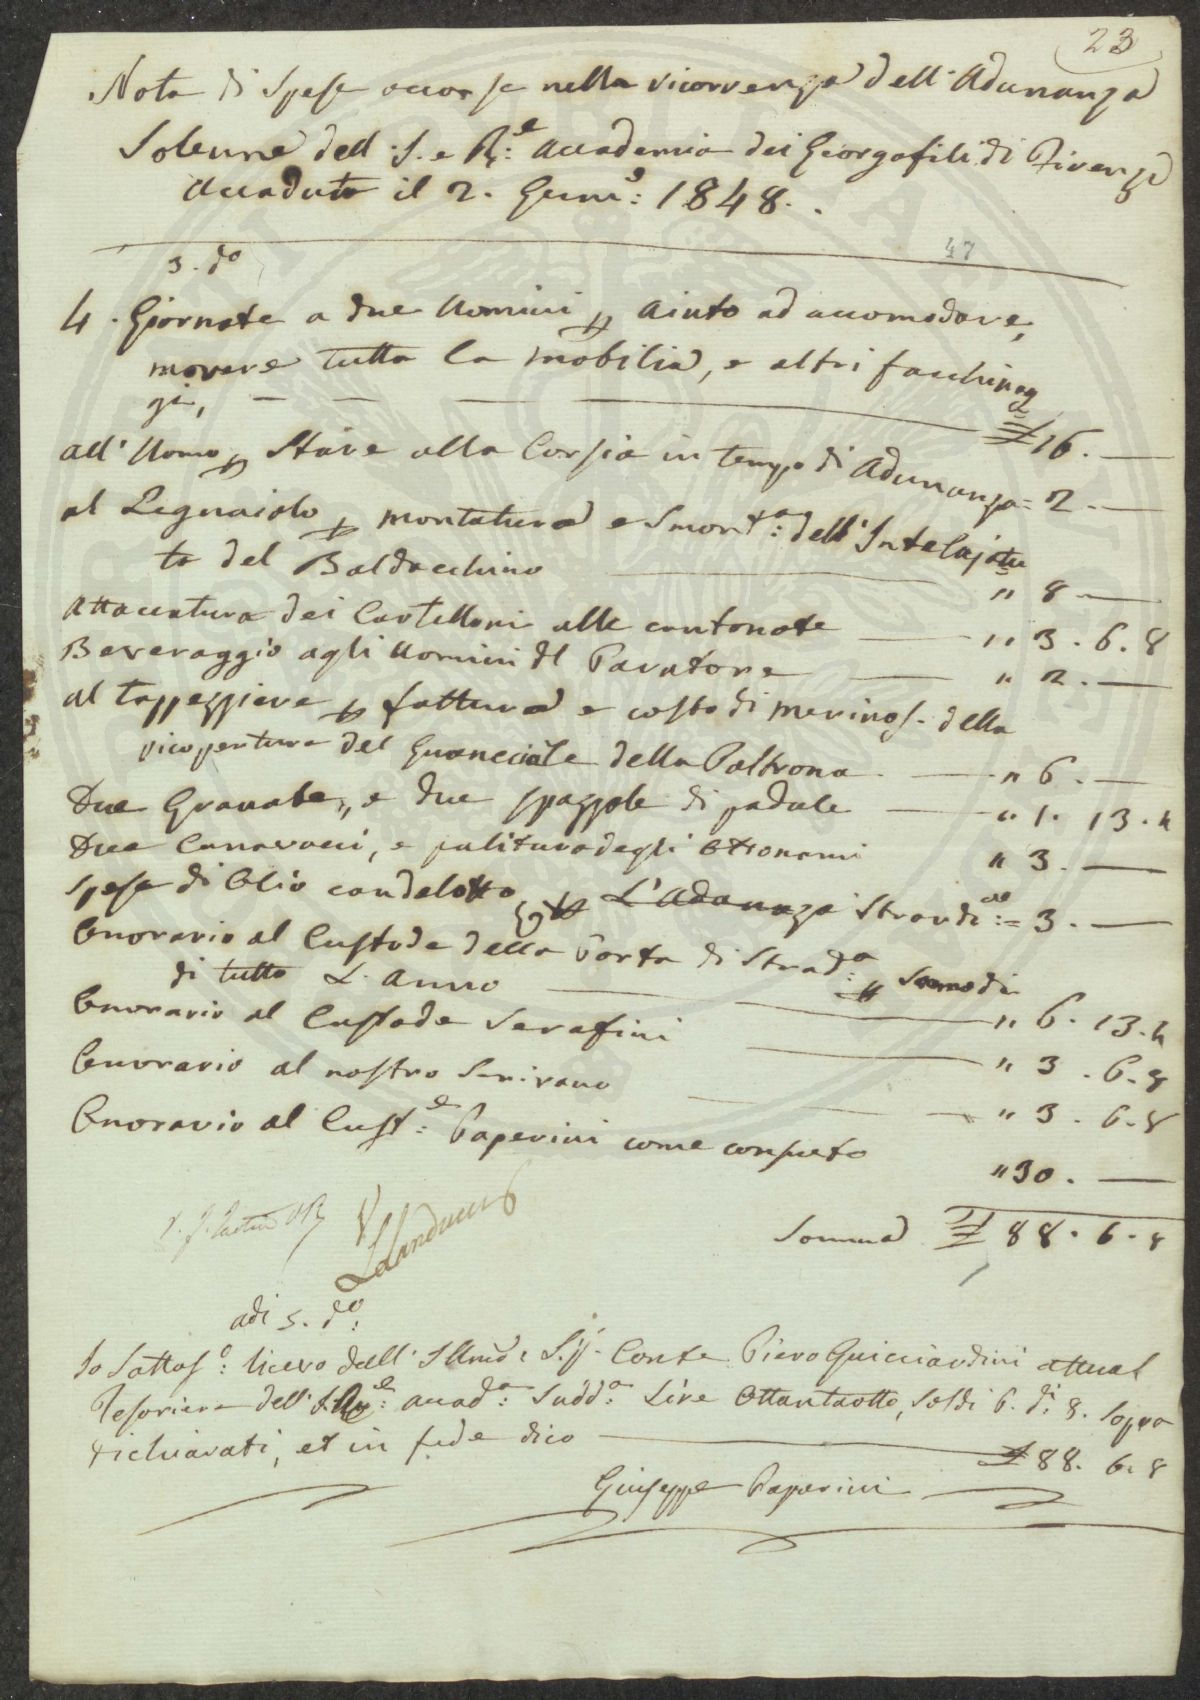 23
Nota di Spese occorse nella ricorrenza dell'Adunanza
Solenne dell' I. e R.e Accademia dei Georgofili di Firenze
accaduta il 2. Genn:o 1848.
47
3. do
4. Giornate a due Uomini p aiuto ad accomodare,
movere tutta la mobilia, e altri facchinag
gi, — — — £ 16. —
all'Uomo p Stare alla Corsia in tempo di Adunanza = 2. —
al Legnaiolo p montatura e Smont.a: dell'Intelajatu
ta del Baldacchino — " 8 —
Attaccatura dei Cartelloni alle cantonate — " 3. 6. 8
Beveraggio agli Uomini del Paratore — " 2. —
al tappezziere p fattura e costo di merinos. della
ricopertura del Guanciale della Poltrona — " 6. —
Due Granate, e due spazzole di padule — " 1. 13. 4
Due Canavacci, e pulitura degli Ottonami " 3. —
Spese di Olio candelotto p L'Adunanza Straordi:e := 3. —
Onorario al Custode della Porta di Strad:a p Comodi
di tutto L'Anno — " 6. 13. 4
Onorario al Custode Serafini — " 3. 6. 8
Onorario al nostro Scrivano — " 3. 6. 8
Onorario al Cust:e Paperini come consueto
" 30. —
Somma £ 88. 6. 8
V. Landucci
adi 5. do:
Io Sottos:o ricevo dall' Illmo: Sig. Conte Piero Guicciardini attual
Tesoriere dell' I. R.e: accad:a Sudd:a Lire Ottantaotto, Soldi 6. di 8. Sopra
dichiarati, et in fede dico — £ 88. 6. 8
Giuseppe Paperini